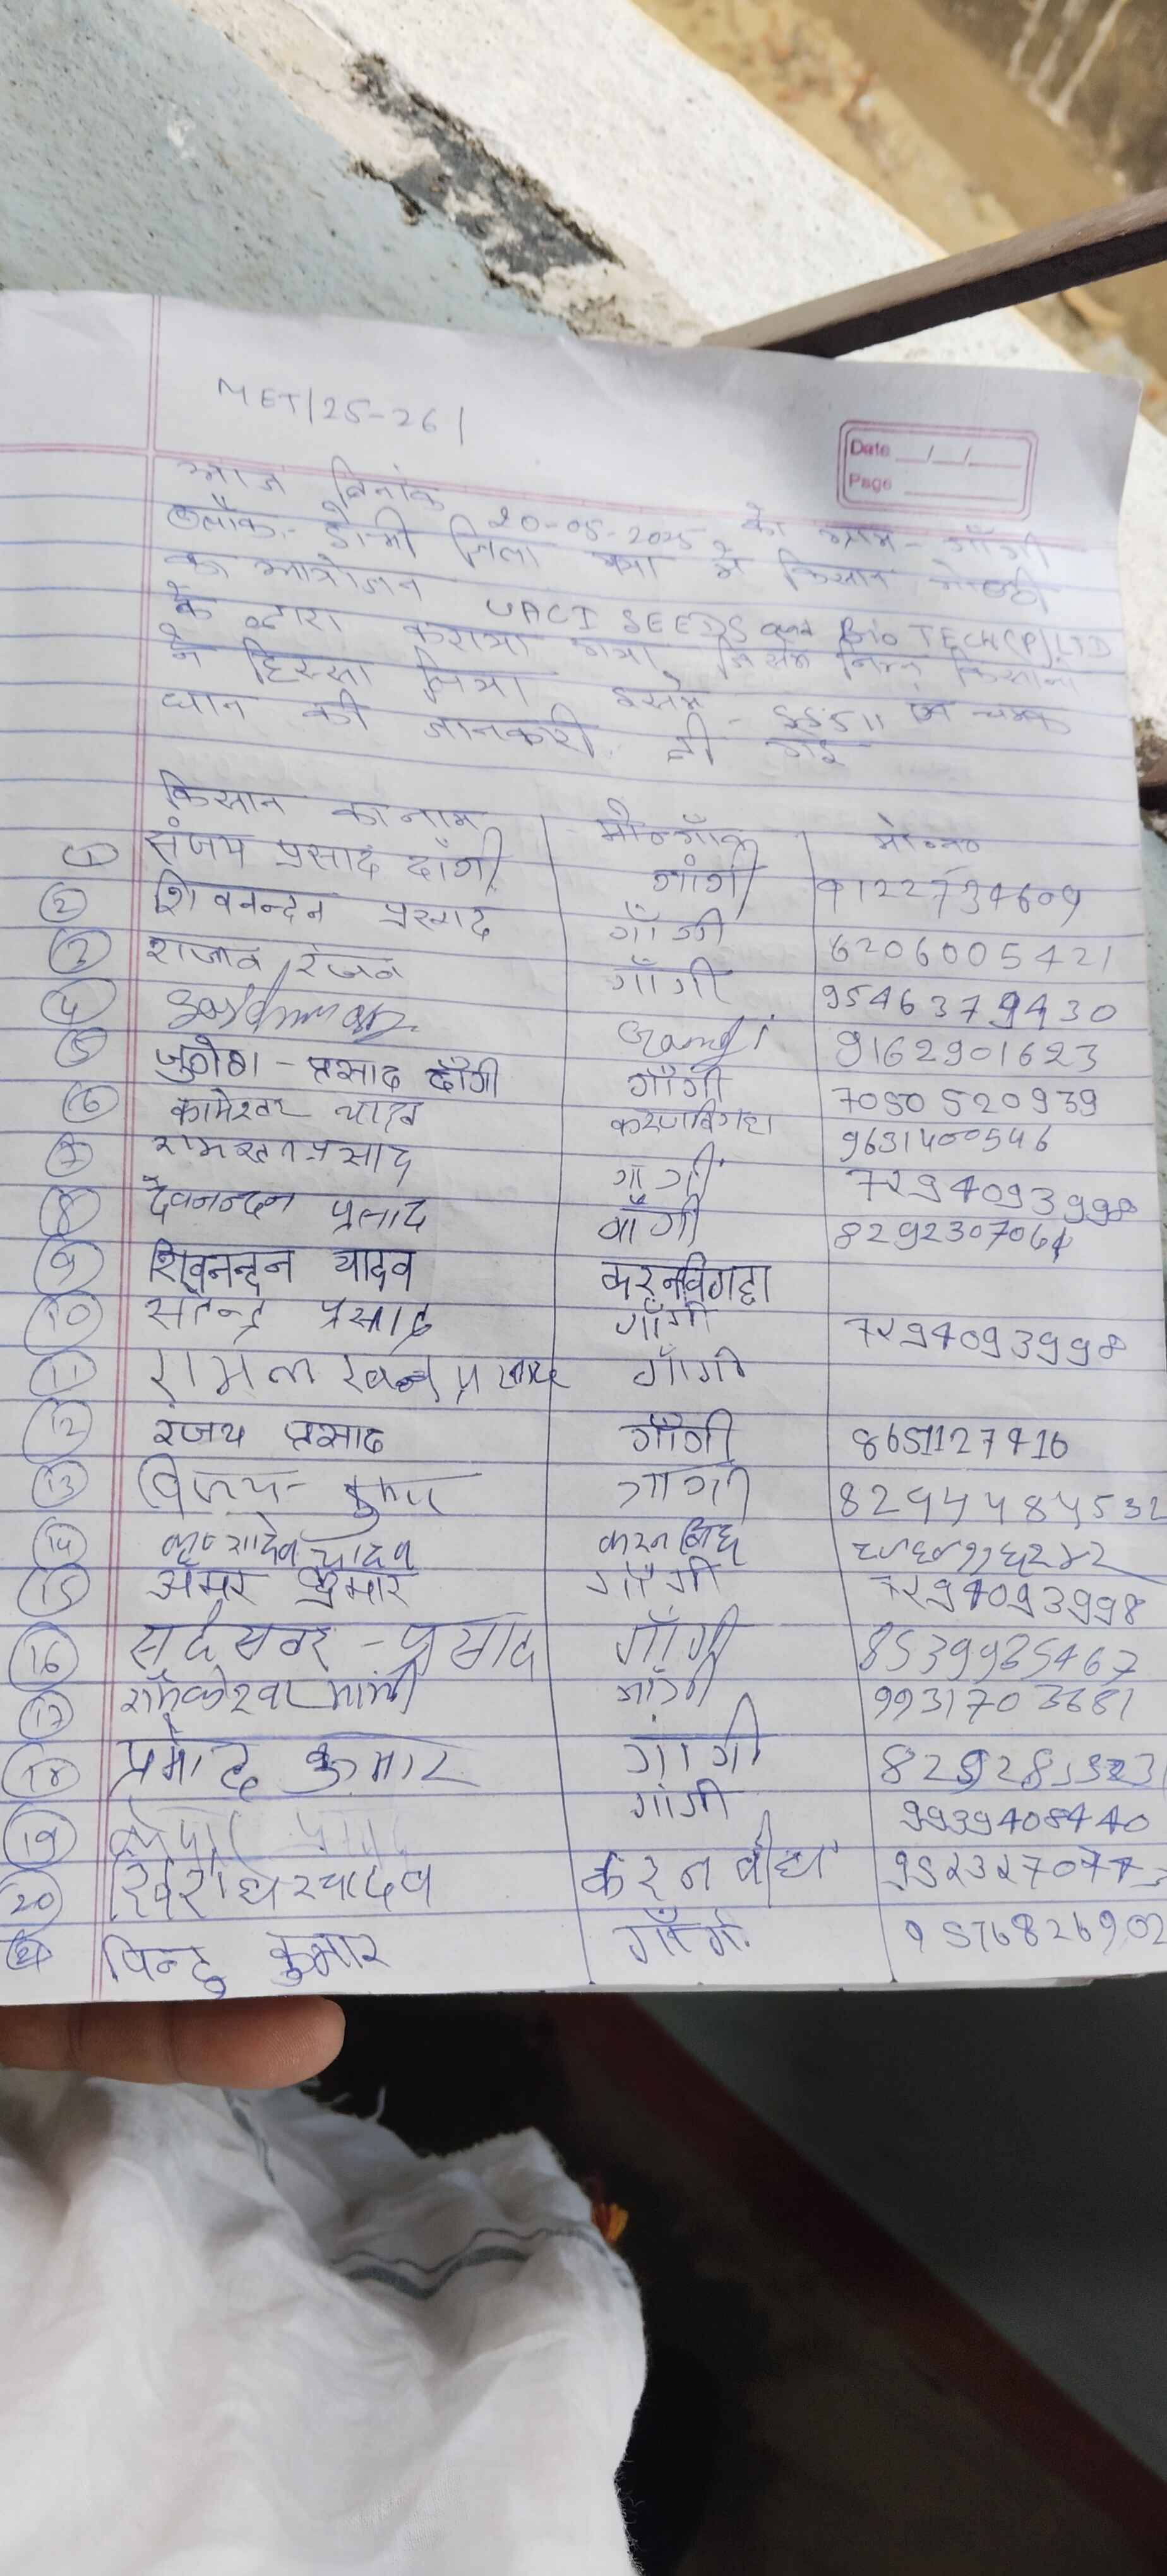 MET/25-26/
Date __/__/__
Page
आज दिनांक 20-05-2025 को ग्राम - गाँगी
ब्लौक - डोभी जिला गया में किसान गोष्ठी
का आयोजन UACI SEEDS and Bio TECH(P)LTD
के द्वारा कराया गया जिसमें निम्न किसानों
ने हिस्सा लिया इसमें - SS511 एवं चमक
धान की जानकारी दी गई
किसान का नाम मो०नं०
1 संजय प्रसाद दाँगी गाँगी 9122734609
2 शिवनन्दन प्रसाद गाँगी 6206005421
3 राजीव रंजन गाँगी 9546379430
4 Gangi 9162901623
5 प्रसाद दाँगी गाँगी 7050520939
6 कामेश्वर यादव करणबिगहा 9631400546
7 गाँगी 7294093998
8 देवनन्दन प्रसाद गाँगी 8292307064
9 शिवनन्दन यादव करनविगहा
10 सतेन्द्र प्रसाद गाँगी 7294093998
11 गाँगी
12 रंजय प्रसाद गाँगी 8651127416
13 विजय कुमार गाँगी 8294484532
14 यादव
15 अमर कुमार गाँगी 7294093998
16 प्रसाद गाँगी 8539965467
17 गाँगी 9931703681
18 प्रमोद कुमार गांगी
19 गांगी 9939408440
20 करन वीघा
21 पिन्टु कुमार गाँगी 9576826902